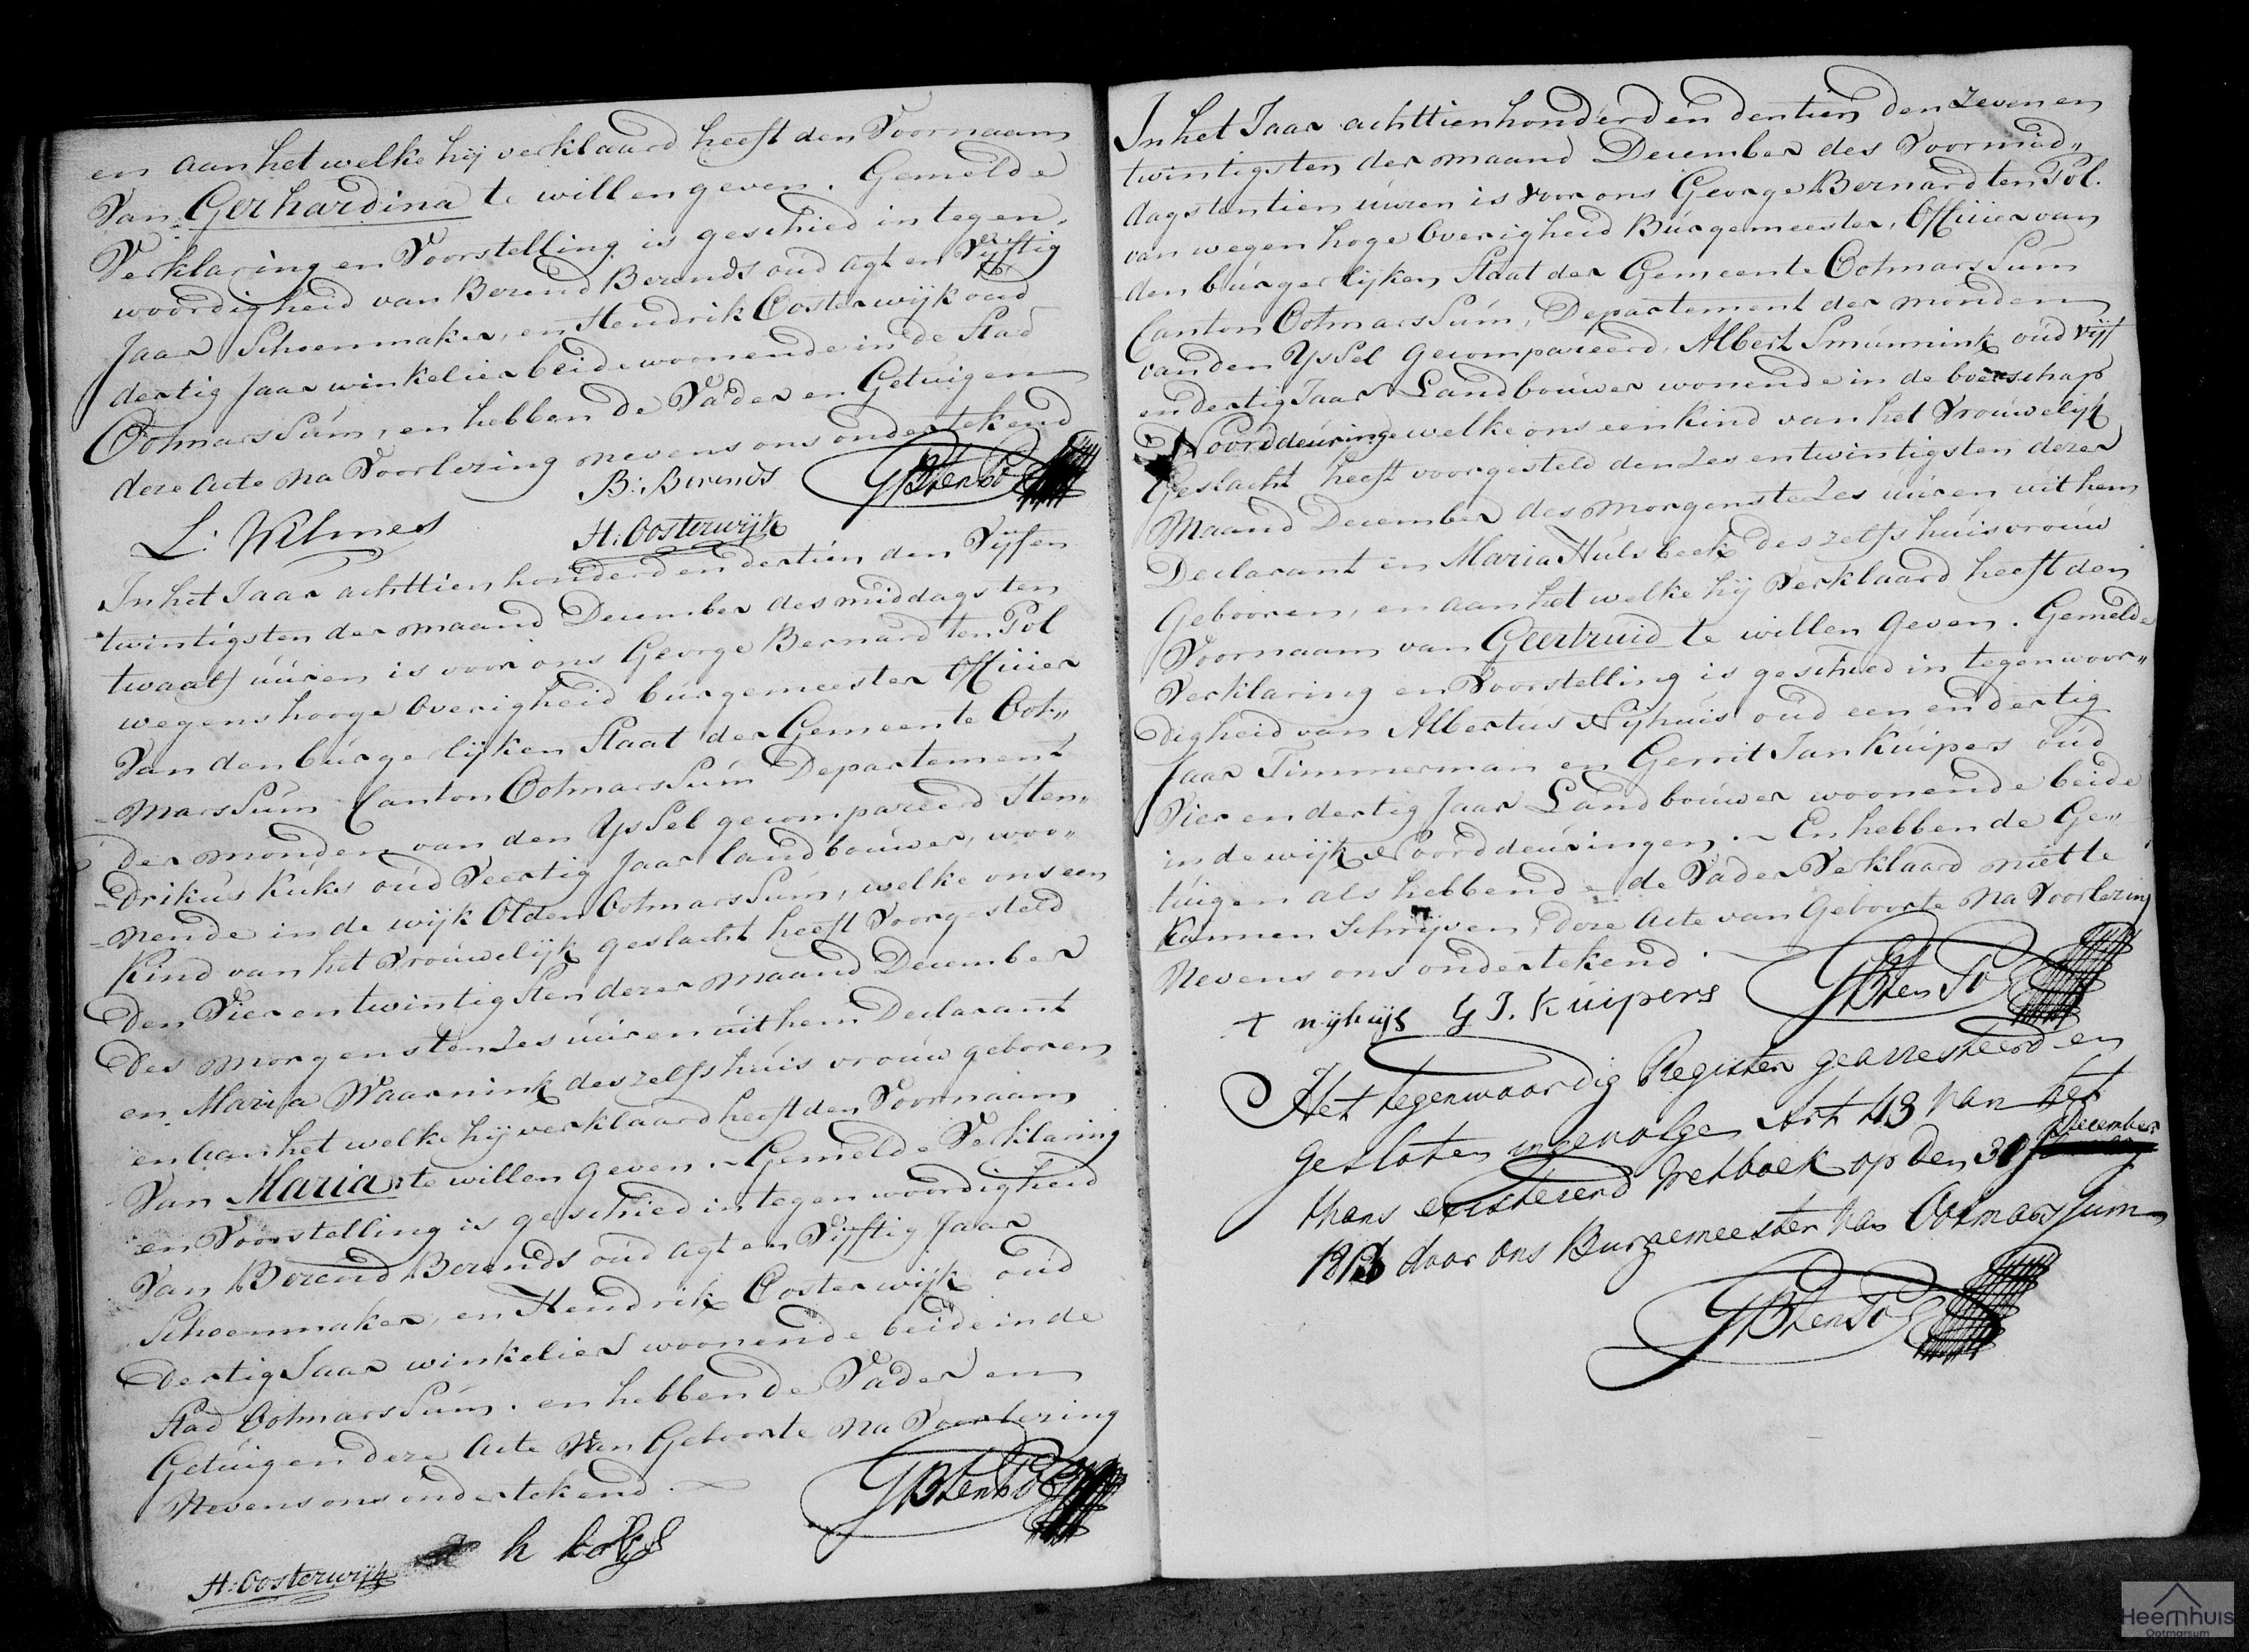 en aan het welke hij verklaard heeft den Voornaam
Van Gerhardina te willen geven. Gemelde
Verklaring en Voorstelling is geschied in tegen,
woordigheid van Berend Berends oud agt en Vyftig
Jaar Schoenmaker, en Hendrik Oosterwijk oud
dertig Jaar winkelier beide woonende in de Stad
Ootmarssum, en hebben de Vader en Getuigen
deze Acte na Voorlezing nevens ons ondertekend
B: Berends GBtenPol
L: Wilmes H: Oosterwijk
In het Jaar achttien honderd en dertien den Vyf en
twintigsten der maand December des middags ten
twaalf uuren is voor ons George Bernard ten Pol
wegens hooge Overigheid burgemeester Officier
Van den burgerlijken Staat der Gemeente Oot„
marssum Canton Ootmarssum Departement
der monden van den Yssel gecompareerd Hen„
drikus Kuks oud Veertig Jaar landbouwer, woo„
nende in de wijk Olden Ootmarssum, welke ons een
Kind van het Vrouwelijk geslacht heeft Voorgesteld
den Vier en twintigsten dezer maand December
des morgens ten zes uuren uit hem Declarant
en Maria Waarnink deszelfs huis vrouw geboren
en aan het welke hij verklaard heeft den Voornaam
Van Maria te willen geven. Gemelde Verklaring
en Voorstelling is geschied in tegenwoordigheid
Van Berend Berends oud agt en Vyftig Jaar
Schoenmaker, en Hendrik Oosterwijk oud
dertig Jaar winkelier woonende beide in de
Stad Ootmarssum. en hebben de Vader en
Getuigen deze Acte Van Geboorte na Voorlezing
Nevens ons ondertekend.
GBtenPol
H: Oosterwijk h
In het Jaar achttienhonderd en dertien den zeven en
twintigsten der maand December des Voormid„
dags ten tien uuren is voor ons George Bernard ten Pol.
van wegen hoge Overigheid Burgemeester, Officier van
den burgerlijken Staat der Gemeente Ootmarssum
Canton Ootmarssum, Departement der monden
van den Yssel gecompareerd, Albert Smunnink oud vijf
en dertig Jaar Landbouwer wonende in de boerschap
Noorddeuringe welke ons een kind van het Vrouwelijk
Geslacht heeft voorgesteld den zes en twintigsten dezer
Maand December des morgens te zes uuren uit hem
Declarant en Maria Hulsbeek deszelfs huisvrouw
Gebooren, en aan het welke hij Verklaard heeft den
Voornaam van Geertruid te willen geven. Gemelde
Verklaring en Voorstelling is geschied in tegenwoor„
digheid van Albertus Nyhuis oud een en dertig
Jaar Timmerman en Gerrit Jan Kuipers oud
Vier en dertig Jaar Landbouwer woonende beide
in de wijk Noorddeuringen. En hebben de Ge„
tuigen als hebbende de Vader Verklaard niet te
Kunnen Schrijven, deze Acte van Geboorte na Voorlezing
Nevens ons ondertekend.
nijhuijs G J. Kuipers GBtenPol
Het tegenwoordig Register gearresteerd en
gesloten ingevolge Art 43 van het
thans existerend Wetboek op den 31 December
1813 door ons Burgemeester van Ootmarssum
GBtenPol
Heemhuis
Ootmarsum